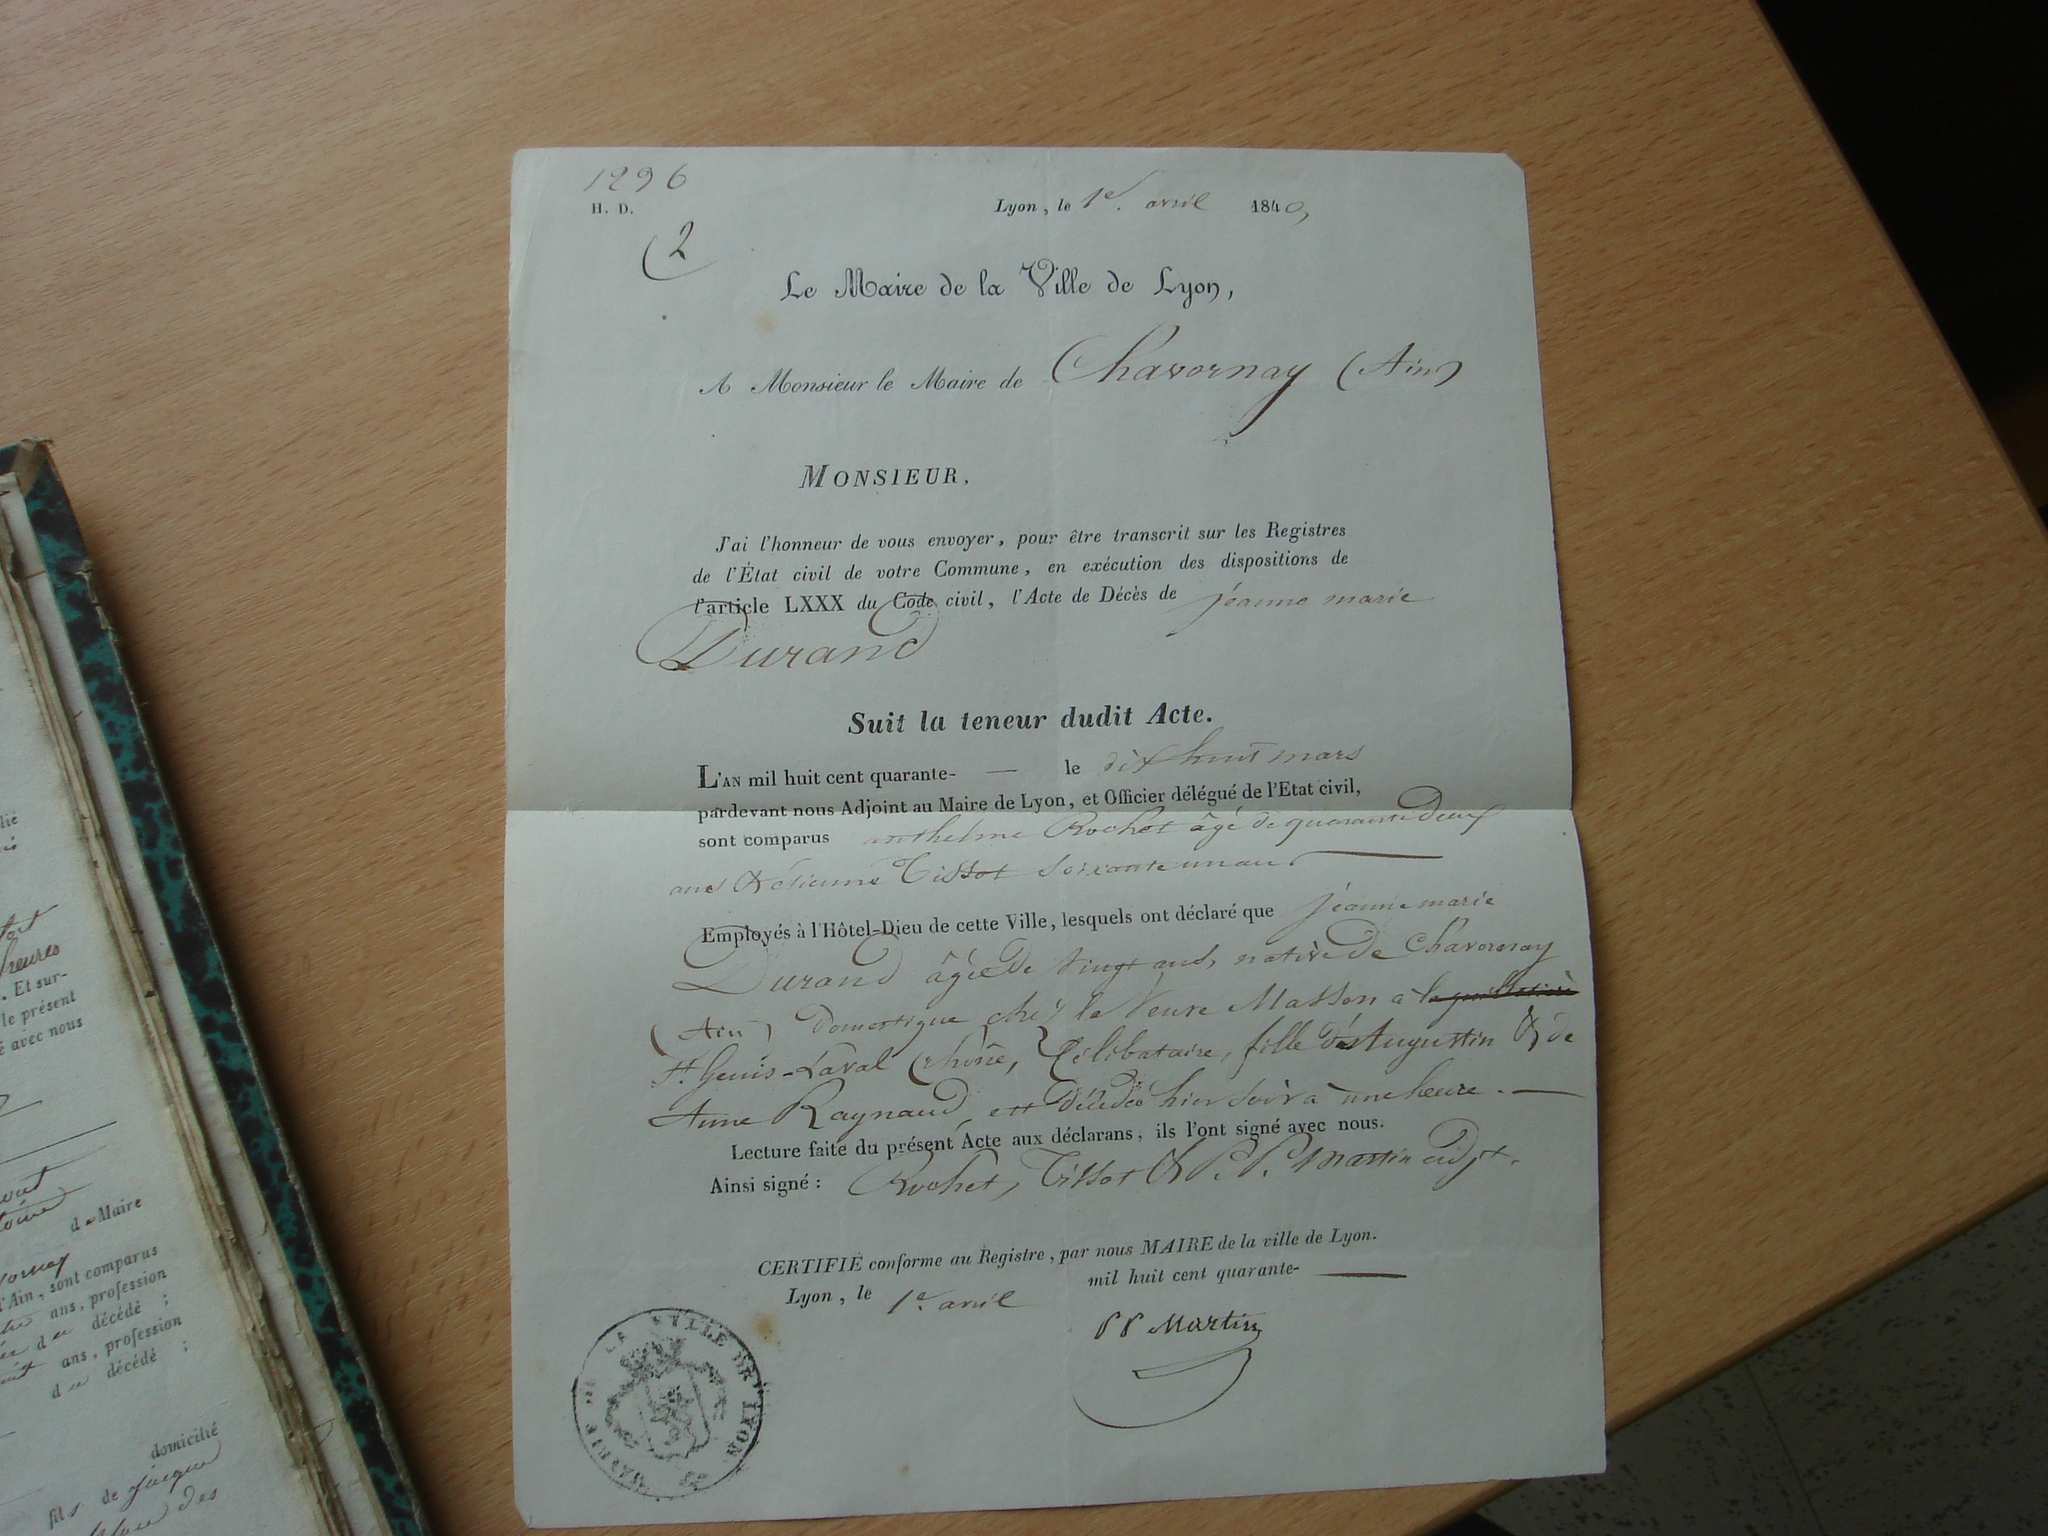 1296
H. D.
Lyon, le 1er. avril 1840,
(2
Le Maire de la Ville de Lyon,
A Monsieur le Maire de Chavornay (Ain)
MONSIEUR,
J'ai l'honneur de vous envoyer, pour être transcrit sur les Registres
de l'État civil de votre Commune, en exécution des dispositions de
l'article LXXX du Code civil, l'Acte de Décès de jeanne marie
Durand
Suit la teneur dudit Acte.
L'AN mil huit cent quarante- — le dix huit mars
pardevant nous Adjoint au Maire de Lyon, et Officier délégué de l'Etat civil,
sont comparus anthelme Rochet âgé de quarante deux
ans & étienne Tissot soixante un ans —
Employés à l'Hôtel-Dieu de cette Ville, lesquels ont déclaré que jeanne marie
Durand âgée de vingt ans, native de Chavornay
(Ain) domestique chez la Veuve Masson à la guillotière
St. Genis-Laval (rhône, Célibataire, fille d'Augustin & de
Anne Raynaud, est décédée hier soir à une heure. —
Lecture faite du présent Acte aux déclarans, ils l'ont signé avec nous.
Ainsi signé : Rochet, Tissot & P. P. Martin adjt.
CERTIFIÉ conforme au Registre, par nous MAIRE de la ville de Lyon.
Lyon, le 1er avril mil huit cent quarante- —
PP Martin
MAIRIE DE LA VILLE DE LYON
heures
. Et sur-
le présent
é avec nous
de Maire
l'Ain, sont comparus
ans, profession
décédé ;
ans, profession
décédé ;
domicilié
fils de jacque
des